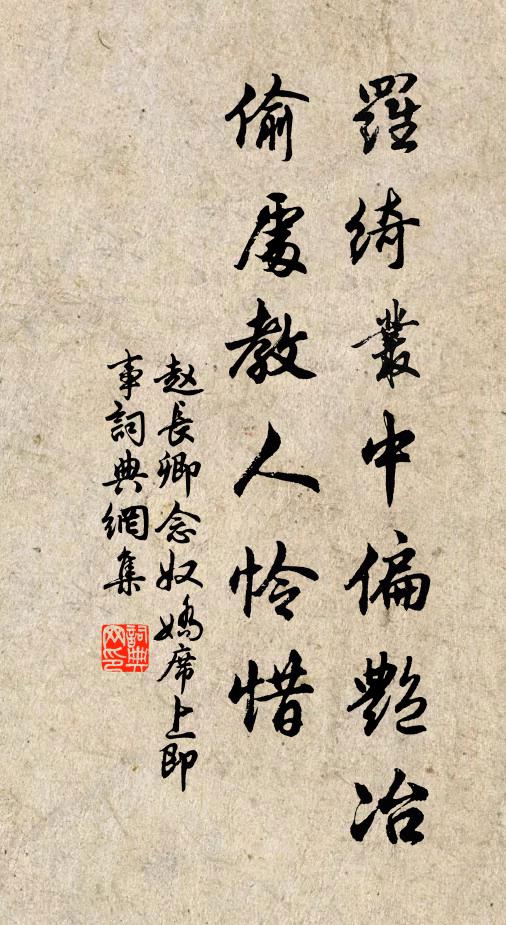 羅綺叢中偏艷冶
偷處教人怜惜
赵長卿念奴嬌席上即
事詞典網集
詞典
网印